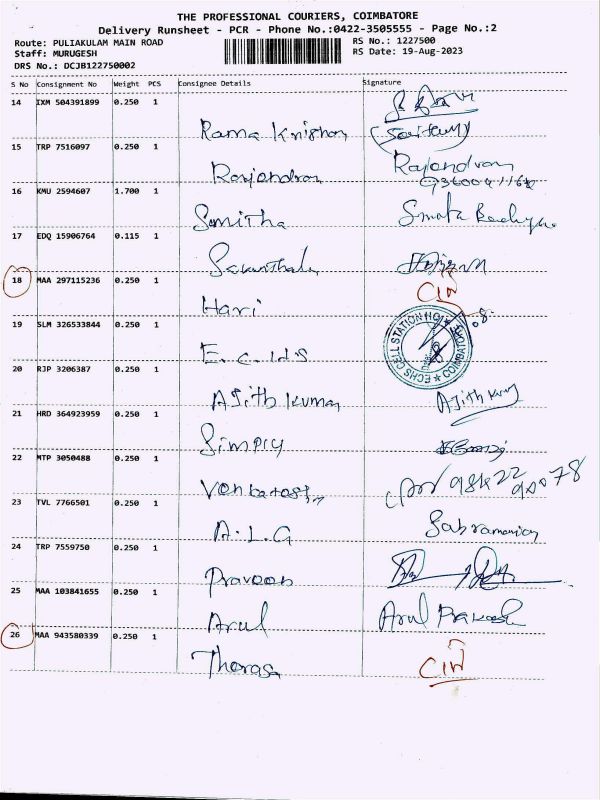 THE PROFESSIONAL COURIERS, COIMBATORE
Delivery Runsheet - PCR - Phone No.:0422-3505555 - Page No.:2
Route: PULIAKULAM MAIN ROAD
RS No.: 1227500
Staff: MURUGESH
RS Date: 19-Aug-2023
DRS No.: DCJB122750002
S No Consignment No Weight PCS Consignee Details Signature
14 IXM 504391899 0.250 1
Rama Krishnan
15 TRP 7516097 0.250 1
Rajendran Rajendran
16 KMU 2594607 1.700 1
Smitha
17 EDQ 15906764 0.115 1
Sakunthala
18 MAA 297115236 0.250 1
Hari
19 SLM 326533844 0.250 1
E.C.H.S
ECHS CELL STATION HQ COIMBATORE
20 RJP 3206387 0.250 1
Ajith Kumar Ajith Kumar
21 HRD 364923959 0.250 1
Simply
22 MTP 3050488 0.250 1
Venkatesh
23 TVL 7766501 0.250 1
A.L.G Subramanian
24 TRP 7559750 0.250 1
Praveen
25 MAA 103841655 0.250 1
Arul Arul Prakash
26 MAA 943580339 0.250 1
Theras